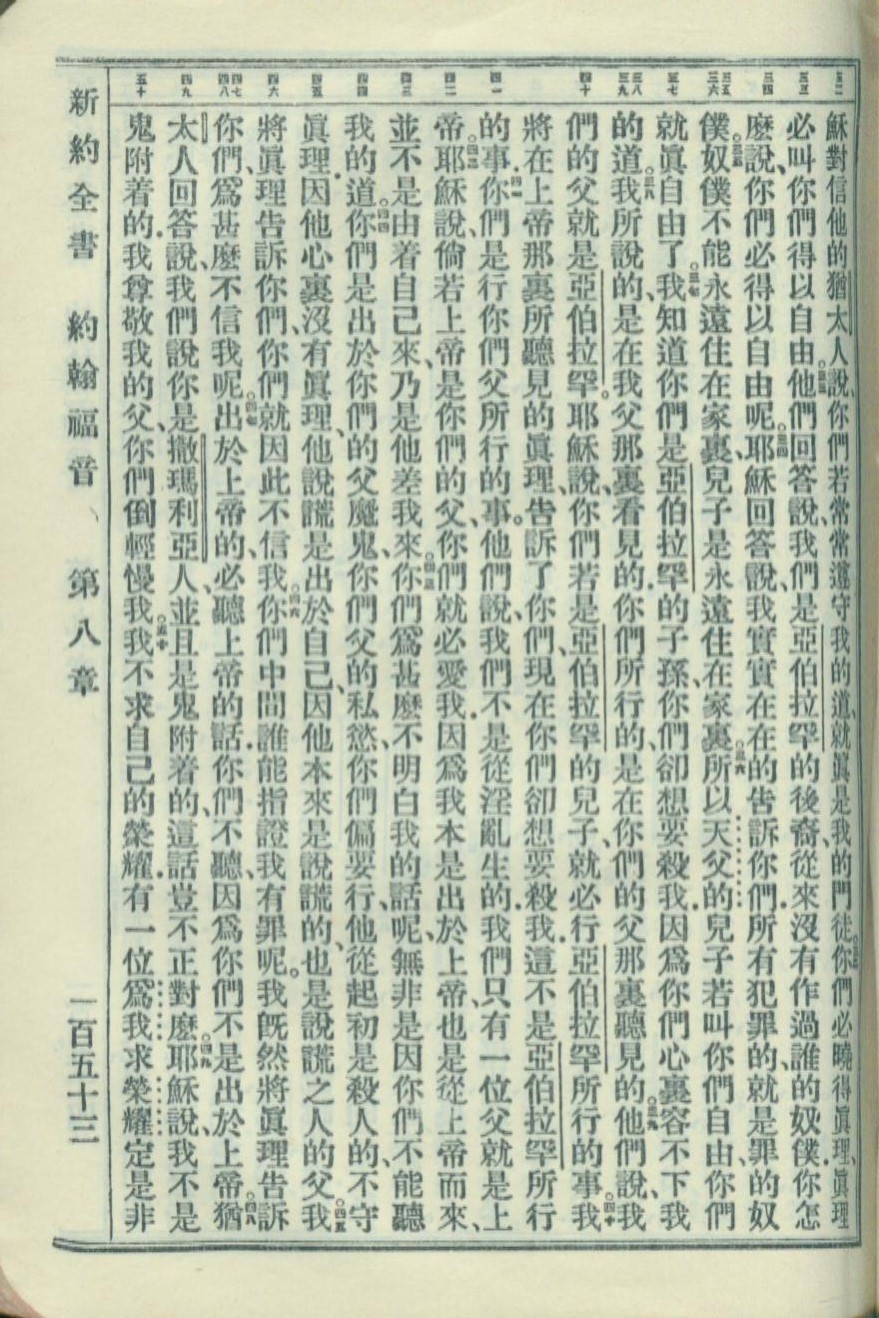 穌對信他的猶太人說、你們若常常遵守我的道、就眞是我的門徒。你們必曉得眞理、眞理
必叫你們得以自由。他們回答說、我們是亞伯拉罕的後裔、從來沒有作過誰的奴僕、你怎
麼說、你們必得以自由呢。耶穌回答說、我實實在在的告訴你們、所有犯罪的、就是罪的奴
僕。奴僕不能永遠住在家裏、兒子是永遠住在家裏。所以天父的兒子若叫你們自由、你們
就眞自由了。我知道你們是亞伯拉罕的子孫、你們卻想要殺我、因爲你們心裏容不下我
的道。我所說的、是在我父那裏看見的、你們所行的、是在你們的父那裏聽見的。他們說、我
們的父就是亞伯拉罕。耶穌說、你們若是亞伯拉罕的兒子、就必行亞伯拉罕所行的事。我
將在上帝那裏所聽見的眞理、告訴了你們、現在你們卻想要殺我、這不是亞伯拉罕所行
的事。你們是行你們父所行的事。他們說、我們不是從淫亂生的、我們只有一位父就是上
帝。耶穌說、倘若上帝是你們的父、你們就必愛我、因爲我本是出於上帝、也是從上帝而來、
並不是由着自己來、乃是他差我來。你們爲甚麼不明白我的話呢、無非是因你們不能聽
我的道。你們是出於你們的父魔鬼、你們父的私慾、你們偏要行、他從起初是殺人的、不守
眞理、因他心裏沒有眞理、他說謊是出於自己、因他本來是說謊的、也是說謊之人的父。我
將眞理告訴你們、你們就因此不信我。你們中間誰能指證我有罪呢。我旣然將眞理告訴
你們、爲甚麼不信我呢。出於上帝的、必聽上帝的話、你們不聽、因爲你們不是出於上帝。猶
太人回答說、我們說你是撒瑪利亞人、並且是鬼附着的、這話豈不正對麼。耶穌說、我不是
鬼附着的、我尊敬我的父、你們倒輕慢我。我不求自己的榮耀、有一位爲我求榮耀定是非
新約全書 約翰福音、 第八章 一百五十三